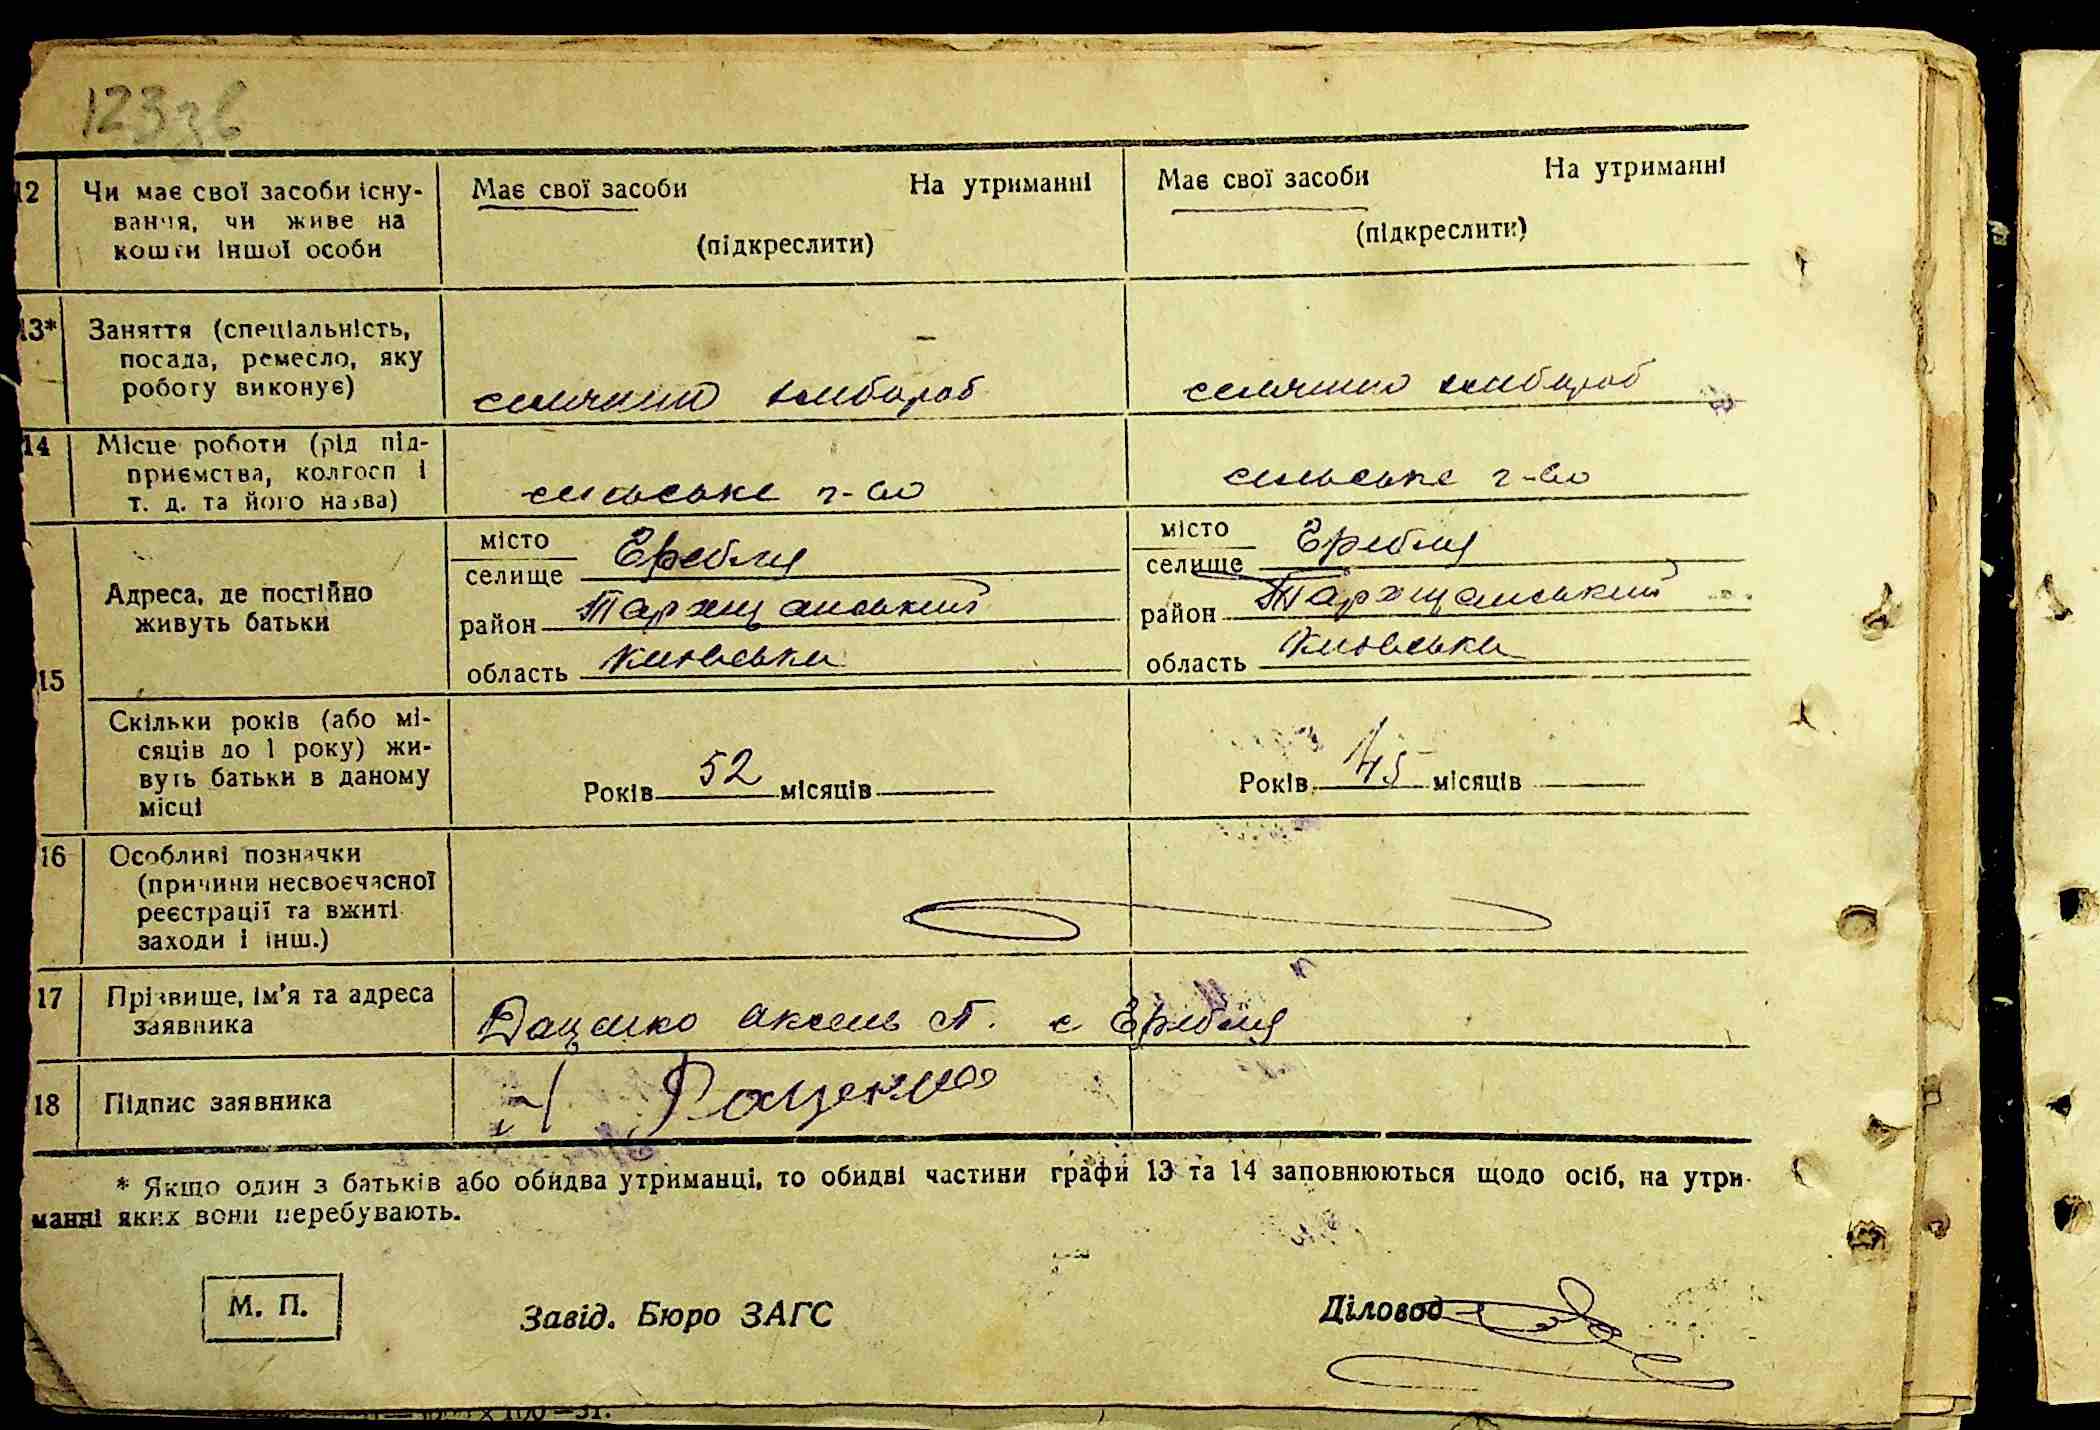 123 зв
12 Чи має свої засоби існу-
вання, чи живе на
кошти іншої особи
Має свої засоби На утриманні
(підкреслити)
Має свої засоби На утриманні
(підкреслити)
13* Заняття (спеціальність,
посада, ремесло, яку
роботу виконує)
селянин хлібороб
селянин хлібороб
14 Місце роботи (рід під-
приємства, колгосп і
т. д. та його назва)
сільське г-во
сільське г-во
15 Адреса, де постійно
живуть батьки
місто
селище Гребля
район Таращанський
область Київська
місто
селище Гребля
район Таращанський
область Київська
Скільки років (або мі-
сяців до 1 року) жи-
вуть батьки в даному
місці
Років 52 місяців
Років 45 місяців
16 Особливі позначки
(причини несвоєчасної
реєстрації та вжиті
заходи і інш.)
17 Прізвище, ім'я та адреса
заявника
Даценко П. с Гребля
18 Підпис заявника
Даценко
* Якщо один з батьків або обидва утриманці, то обидві частини графи 13 та 14 заповнюються щодо осіб, на утри-
манні яких вони перебувають.
М. П.
Завід. Бюро ЗАГС
Діловод